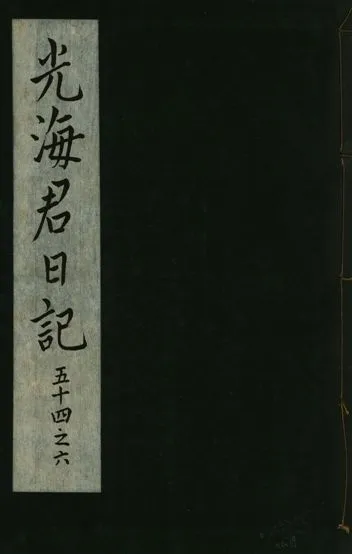 光海君日記
五十四之六